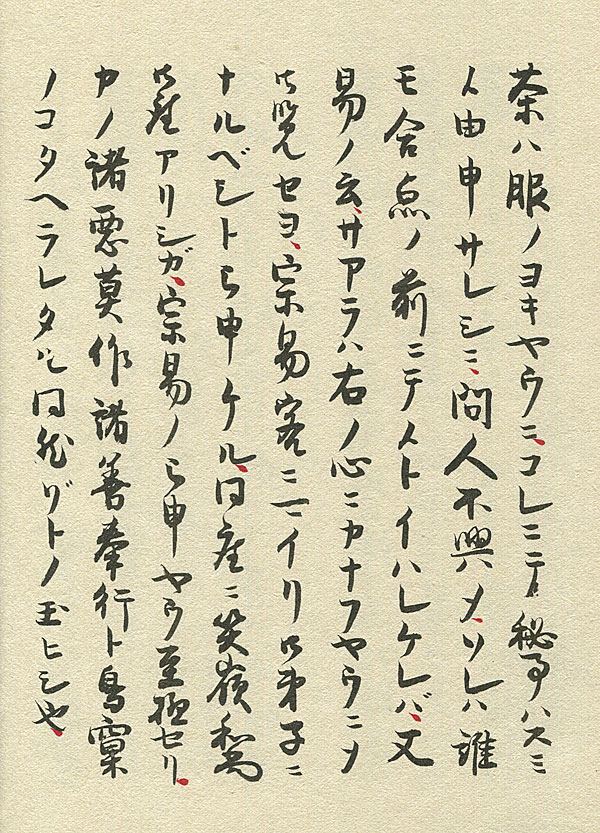 茶ハ服ノヨキヤウニ、コレニテ秘事ハスミ
候由申サレシニ、問人不興〆、ソレハ誰
モ合点ノ前ニテ候トイハレケレバ、又
易ノ云、サアラハ右ノ心ニカナフヤウニ〆
御覧セヨ、宗易客ニマイリ御弟子ニ
ナルベシト被申ケル、同座ニ笑嶺和尚
御座アリシガ、宗易ノ被申ヤウ至極セリ、
カノ諸悪莫作諸善奉行ト鳥窠
ノコタヘラレタル同然ゾトノ玉ヒシ也、